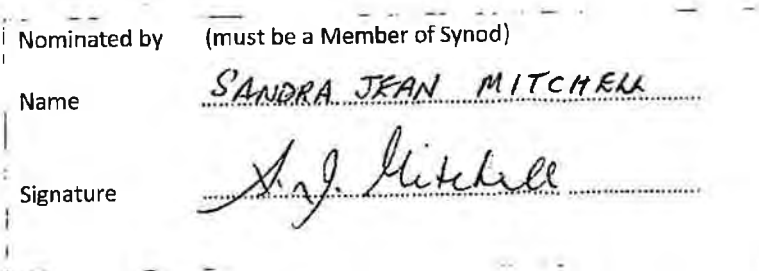 Nominated by (must be a Member of Synod)
Name SANDRA JEAN MITCHELL
Signature S. J. Mitchell